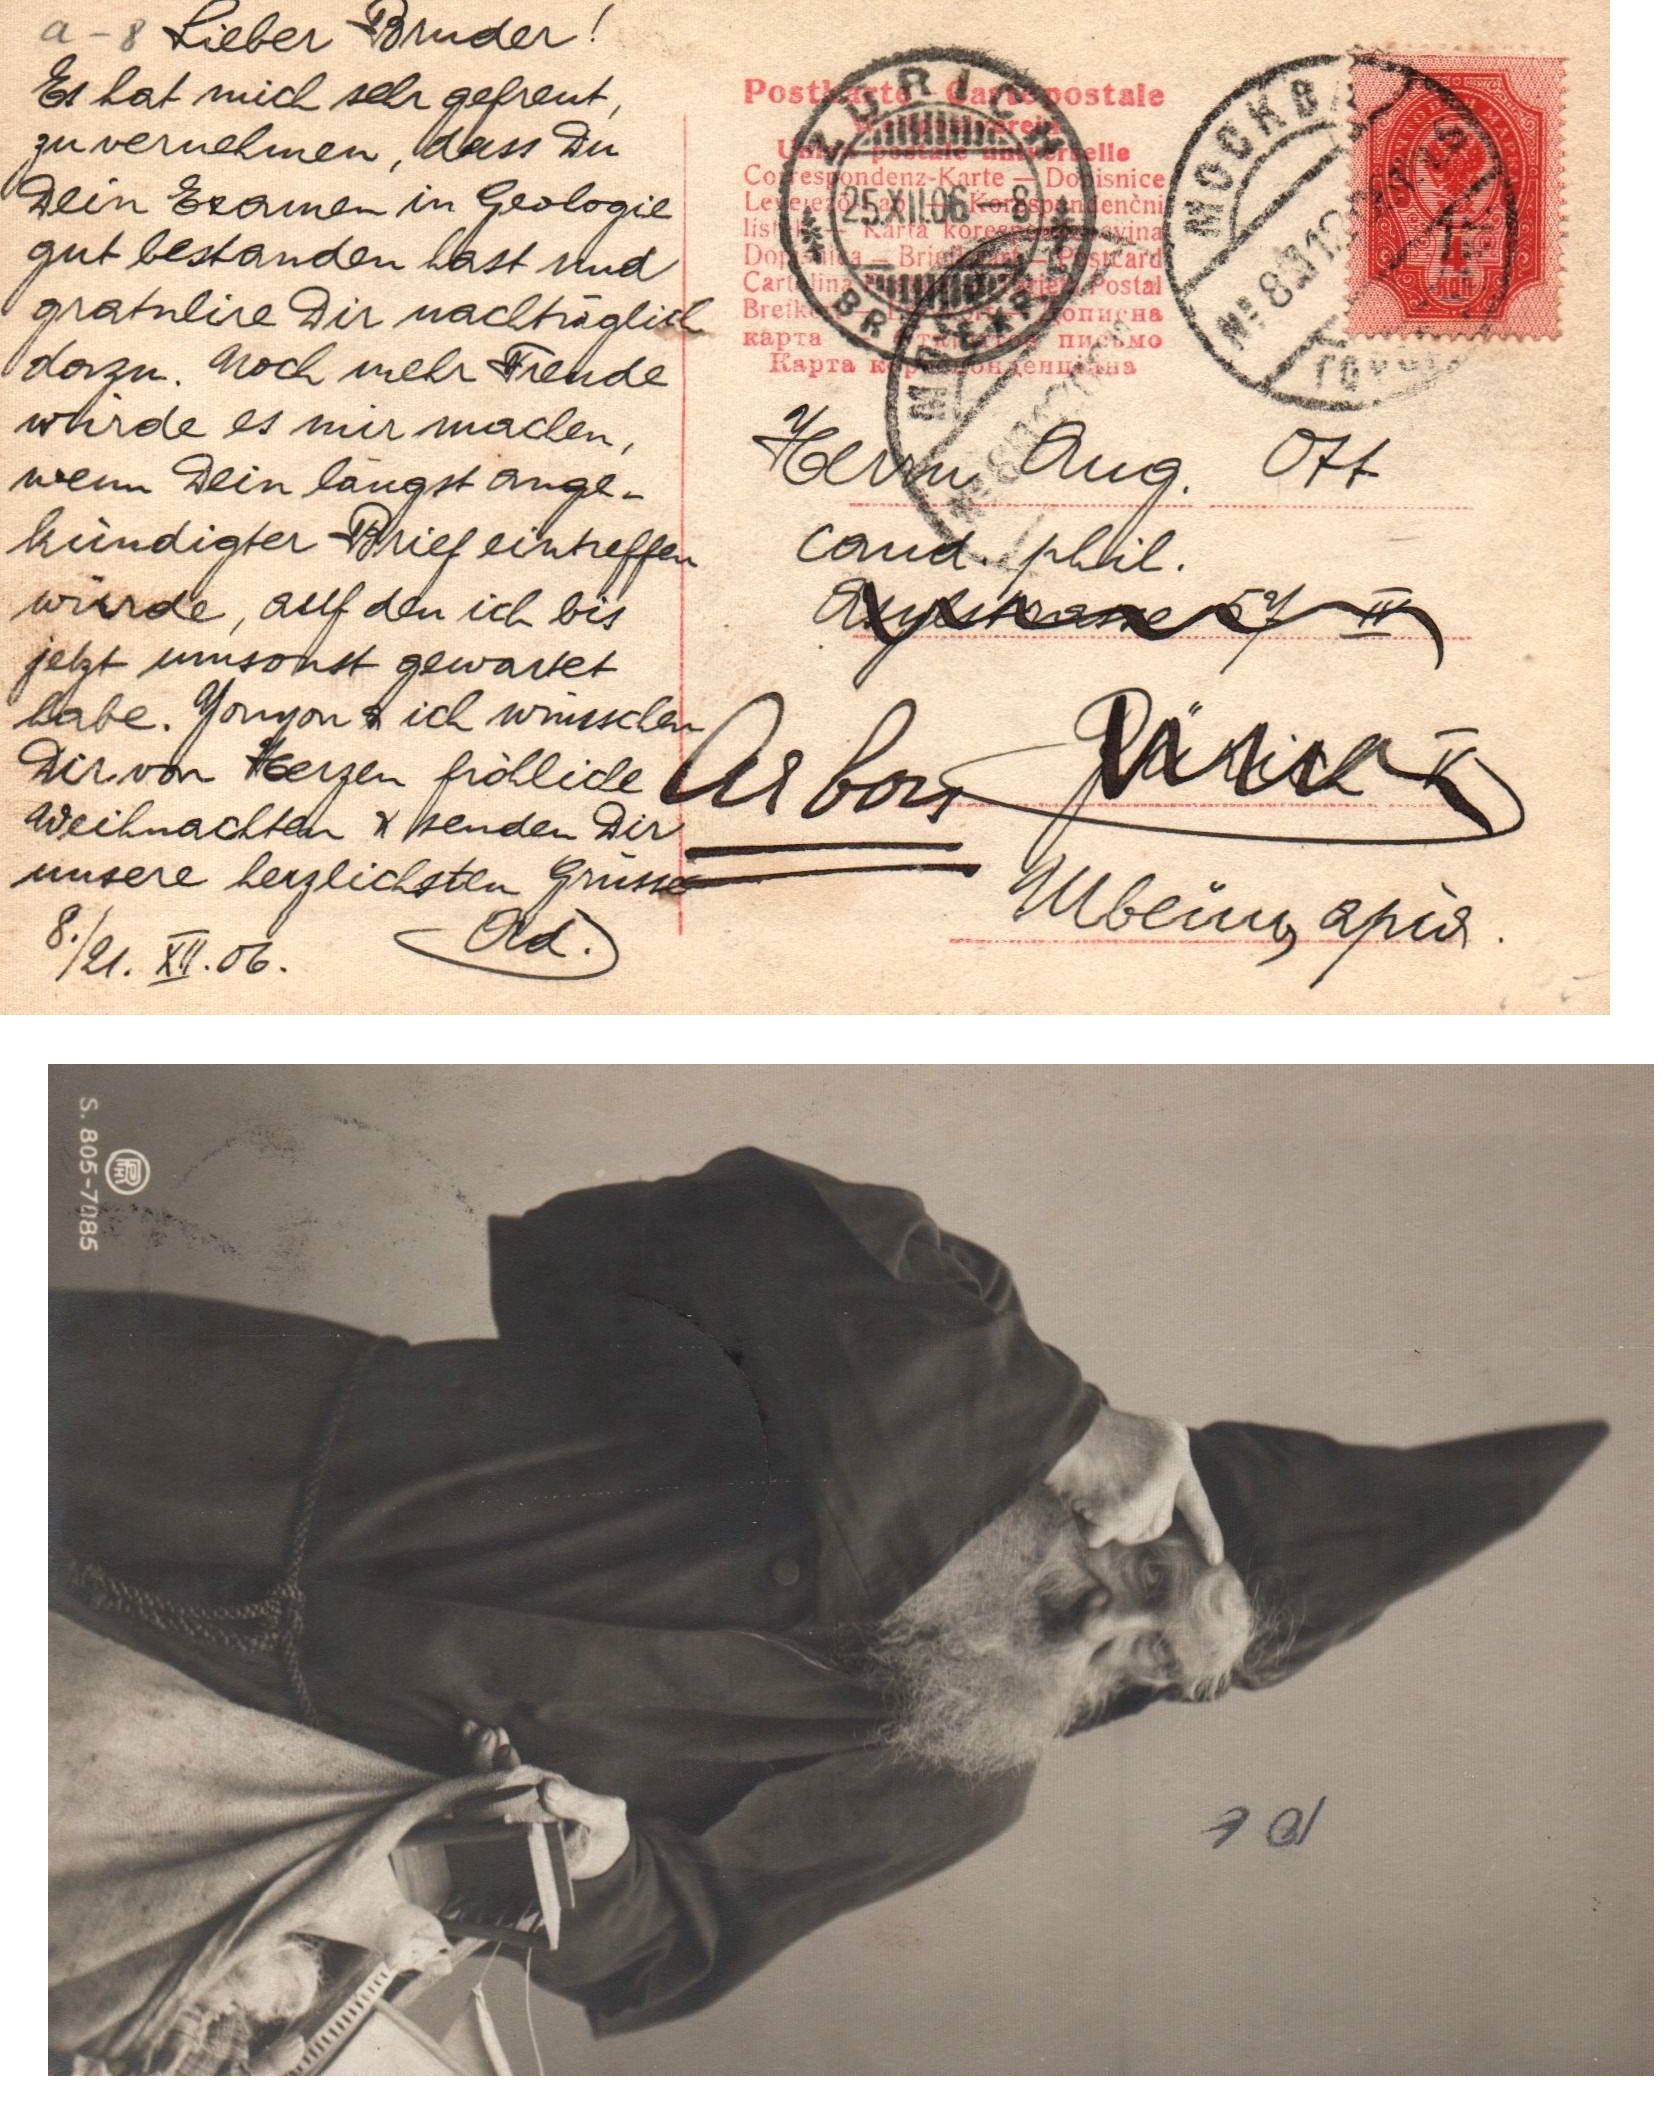 a - 8 Lieber Bruder!
Es hat mich sehr gefreut,
zu vernehmen, dass Du
Dein Examen in Geologie
gut bestanden hast und
gratulire Dir nachträglich
dazu. Noch mehr Freude
würde es mir machen,
wenn Dein längst ange-
kündigter Brief eintreffen
würde, auf den ich bis
jetzt umsonst gewartet
habe. & ich wünschen
Dir von Herzen fröhliche
Weihnachten & senden Dir
unsere herzlichsten Grüsse
8./21. XII. 06. Ad.
Postkarte Carte postale
Weltpostverein
Union postale universelle
Correspondenz-Karte — Dopisnice
Korespondenční
Karta korespondencyjna
Dopisnica — Briefkaart — Postcard
Cartolina Postal
дописна
карта — Открытое письмо
Карта кореспонденціина
ZÜRICH
25.XII.06 - 8
BRIEFTRÄGER
МОСКВА
Herrn Aug. Ott
cand. phil.
Asylstrasse II
Zürich V
Arbon
Швейцарія.
S. 805-7085